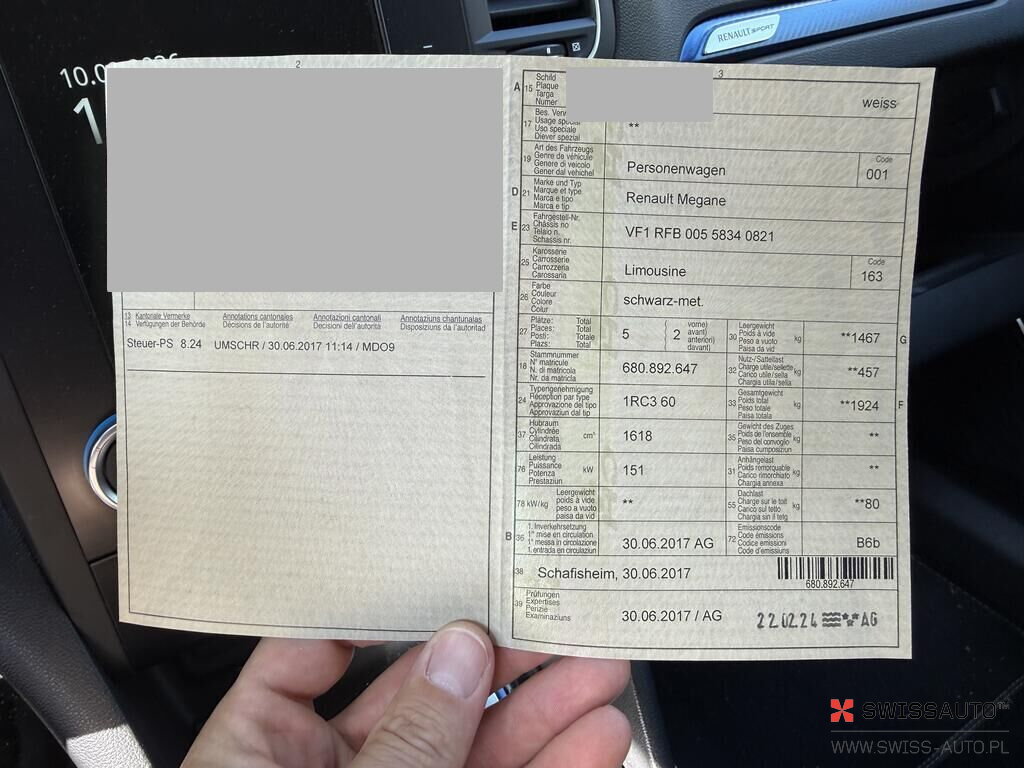 RENAULT SPORT
10.0
1
2
3
A 15 Schild Plaque Targa Numer
weiss
17 Bes. Usage special Uso speciale Diever spezial
**
19 Art des Fahrzeugs Genre de véhicule Genere di veicolo Gener dal vehichel
Personenwagen
Code 001
D 21 Marke und Typ Marque et type Marca e tipo Marca e tip
Renault Megane
E 23 Fahrgestell-Nr. Châssis no Telaio n. Schassis nr.
VF1 RFB 005 5834 0821
25 Karosserie Carrosserie Carrozzeria Carossaria
Limousine
Code 163
26 Farbe Couleur Colore Colur
schwarz-met.
27 Plätze: Total Places: Total Posti: Totale Plazs: Total
5 ( 2 vorne) avant) anteriori) davant)
30 Leergewicht Poids à vide Peso a vuoto Paisa da vid kg
**1467 G
18 Stammnummer N° matricule N. di matricola Nr. da matricla
680.892.647
32 Nutz-/Sattellast Charge utile/sellette Carico utile/sella Chargia utila/sella kg
**457
24 Typengenehmigung Réception par type Approvazione del tipo Approvaziun dal tip
1RC3 60
33 Gesamtgewicht Poids total Peso totale Paisa totala kg
**1924 F
37 Hubraum Cylindrée Cilindrata Cilindrada cm³
1618
35 Gewicht des Zuges Poids de l'ensemble Peso del convoglio Paisa cumposiziun kg
**
76 Leistung Puissance Potenza Prestaziun kW
151
31 Anhängelast Poids remorquable Carico rimorchiato Chargia annexa kg
**
78 kW/kg Leergewicht poids à vide peso a vuoto paisa da vid
**
55 Dachlast Charge sur le toit Carico sul tetto Chargia sin il tetg kg
**80
B 36 1. Inverkehrsetzung 1re mise en circulation 1a messa in circolazione 1. entrada en circulaziun
30.06.2017 AG
72 Emissionscode Code émissions Codice emissioni Code d'emissiuns
B6b
38 Schafisheim, 30.06.2017
680.892.647
39 Prüfungen Expertises Perizie Examinaziuns
30.06.2017 / AG
22.02.24 AG
13 Kantonale Vermerke Annotations cantonales Annotazioni cantonali Annotaziuns chantunalas
14 Verfügungen der Behörde Décisions de l'autorité Decisioni dell'autorità Disposiziuns da l'autoritad
Steuer-PS 8.24 UMSCHR / 30.06.2017 11:14 / MDO9
SWISSAUTO™
WWW.SWISS-AUTO.PL